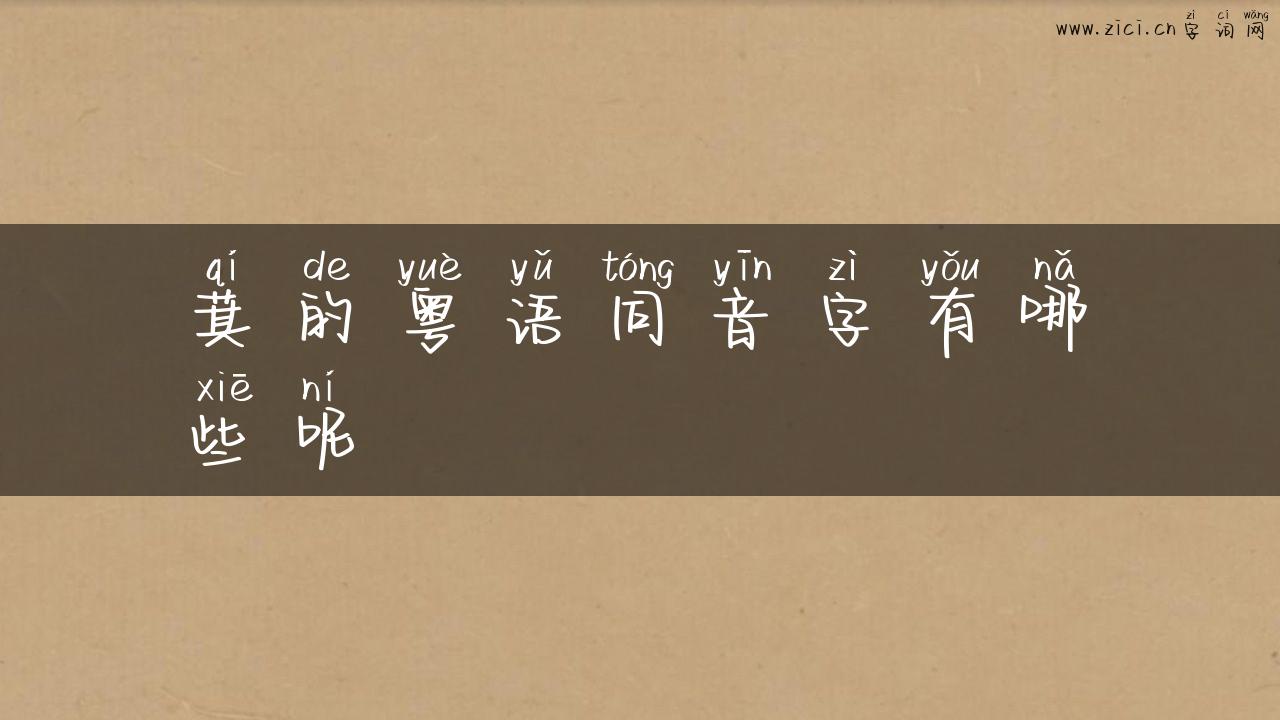 zì cí wǎng
www.zici.cn 字词网
qí de yuè yǔ tóng yīn zì yǒu nǎ
萁的粤语同音字有哪
xiē ní
些呢